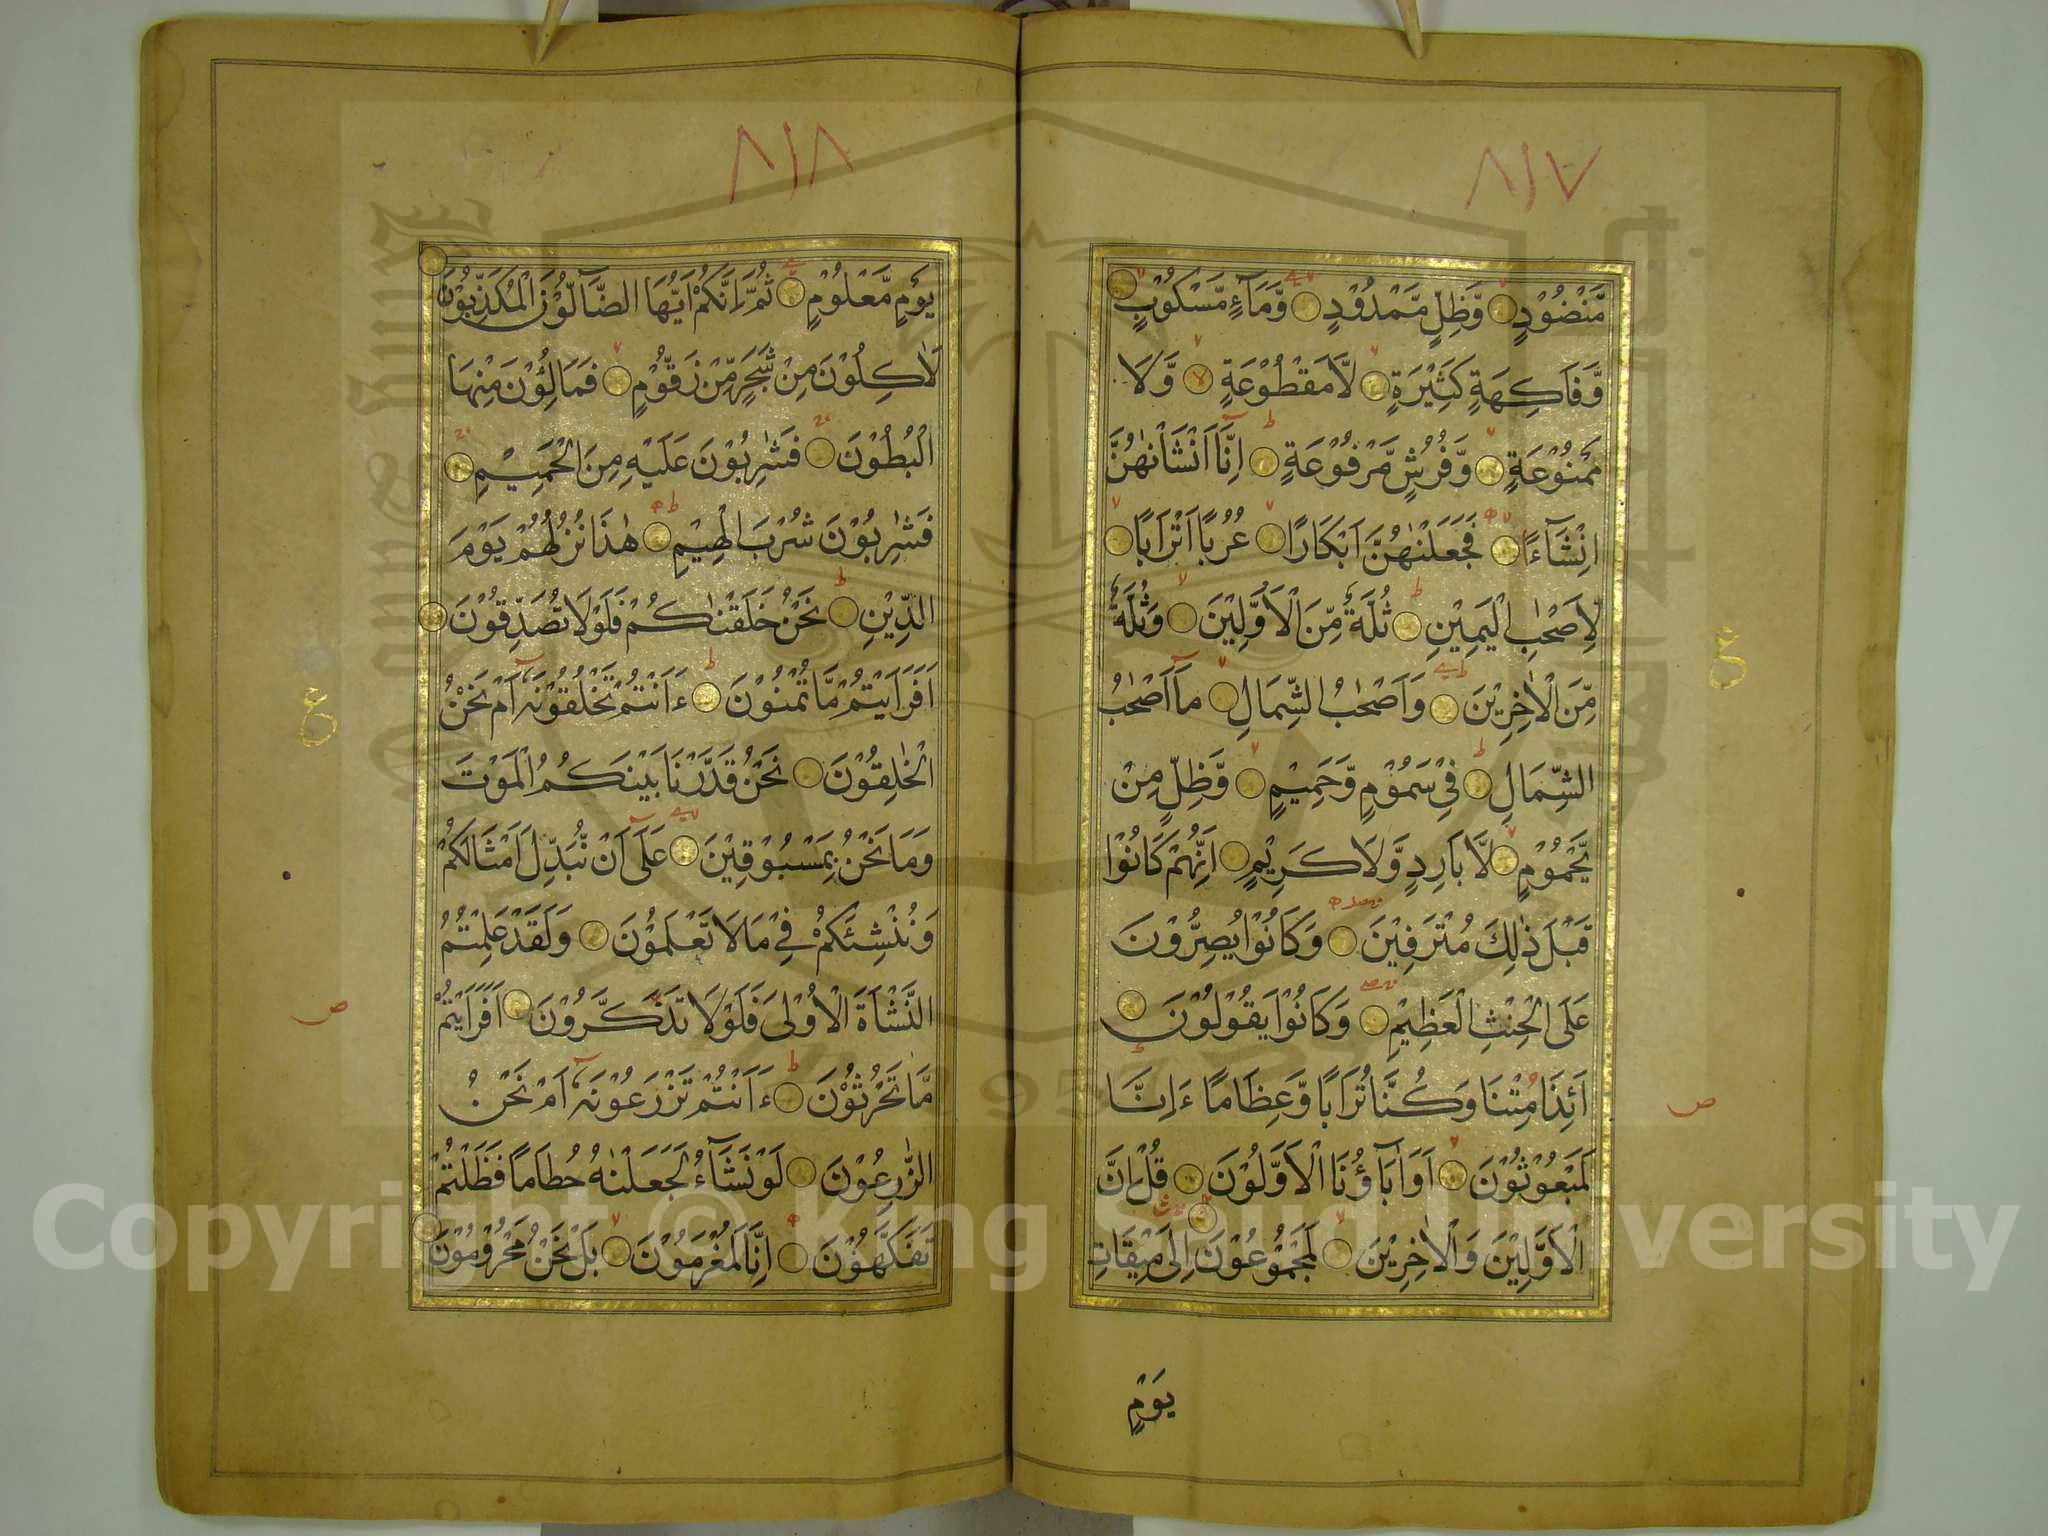 ٨١٧
مَّنْضُوْدٍ وَّظِلٍّ مَّمْدُوْدٍ وَّمَآءٍ مَّسْكُوْبٍ
وَّفَاكِهَةٍ كَثِيْرَةٍ لَّا مَقْطُوْعَةٍ وَّلَا
مَمْنُوْعَةٍ وَّفُرُشٍ مَّرْفُوْعَةٍ اِنَّآ اَنْشَاْنٰهُنَّ
اِنْشَآءً فَجَعَلْنٰهُنَّ اَبْكَارًا عُرُبًا اَتْرَابًا
لِّاَصْحٰبِ الْيَمِيْنِ ثُلَّةٌ مِّنَ الْاَوَّلِيْنَ وَثُلَّةٌ
مِّنَ الْاٰخِرِيْنَ وَاَصْحٰبُ الشِّمَالِ مَآ اَصْحٰبُ
الشِّمَالِ فِيْ سَمُوْمٍ وَّحَمِيْمٍ وَّظِلٍّ مِنْ
يَّحْمُوْمٍ لَّا بَارِدٍ وَّلَا كَرِيْمٍ اِنَّهُمْ كَانُوْا
قَبْلَ ذٰلِكَ مُتْرَفِيْنَ وَكَانُوْا يُصِرُّوْنَ
عَلَى الْحِنْثِ الْعَظِيْمِ وَكَانُوْا يَقُوْلُوْنَ
اَئِذَا مِتْنَا وَكُنَّا تُرَابًا وَّعِظَامًا ءَاِنَّا
لَمَبْعُوْثُوْنَ اَوَاٰبَآؤُنَا الْاَوَّلُوْنَ قُلْ اِنَّ
الْاَوَّلِيْنَ وَالْاٰخِرِيْنَ لَمَجْمُوْعُوْنَ اِلٰى مِيْقَاتِ
يَوْمٍ
ع
ص
٨١٨
يَوْمٍ مَّعْلُوْمٍ ثُمَّ اِنَّكُمْ اَيُّهَا الضَّآلُّوْنَ الْمُكَذِّبُوْنَ
لَاٰكِلُوْنَ مِنْ شَجَرٍ مِّنْ زَقُّوْمٍ فَمَالِئُوْنَ مِنْهَا
الْبُطُوْنَ فَشٰرِبُوْنَ عَلَيْهِ مِنَ الْحَمِيْمِ
فَشٰرِبُوْنَ شُرْبَ الْهِيْمِ هٰذَا نُزُلُهُمْ يَوْمَ
الدِّيْنِ نَحْنُ خَلَقْنٰكُمْ فَلَوْلَا تُصَدِّقُوْنَ
اَفَرَاَيْتُمْ مَّا تُمْنُوْنَ ءَاَنْتُمْ تَخْلُقُوْنَهٗ اَمْ نَحْنُ
الْخٰلِقُوْنَ نَحْنُ قَدَّرْنَا بَيْنَكُمُ الْمَوْتَ
وَمَا نَحْنُ بِمَسْبُوْقِيْنَ عَلٰٓى اَنْ نُّبَدِّلَ اَمْثَالَكُمْ
وَنُنْشِئَكُمْ فِيْ مَا لَا تَعْلَمُوْنَ وَلَقَدْ عَلِمْتُمُ
النَّشْاَةَ الْاُوْلٰى فَلَوْلَا تَذَكَّرُوْنَ اَفَرَاَيْتُمْ
مَّا تَحْرُثُوْنَ ءَاَنْتُمْ تَزْرَعُوْنَهٗ اَمْ نَحْنُ
الزّٰرِعُوْنَ لَوْ نَشَآءُ لَجَعَلْنٰهُ حُطَامًا فَظَلْتُمْ
تَفَكَّهُوْنَ اِنَّا لَمُغْرَمُوْنَ بَلْ نَحْنُ مَحْرُوْمُوْنَ
ع
ص
Copyright © King Saud University